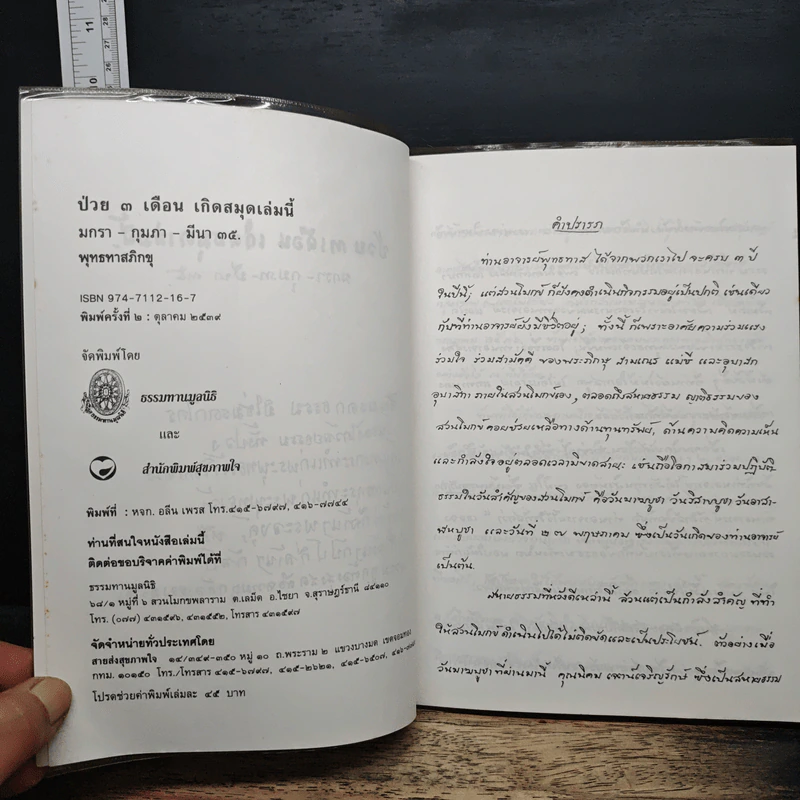 ป่วย ๓ เดือน เกิดสมุดเล่มนี้
มกรา – กุมภา – มีนา ๓๕.
พุทธทาสภิกขุ
ISBN 974-7112-16-7
พิมพ์ครั้งที่ ๒ : ตุลาคม ๒๕๓๙
จัดพิมพ์โดย
ธรรมทานมูลนิธิ
และ
สำนักพิมพ์สุขภาพใจ
พิมพ์ที่ : หจก. อลีน เพรส โทร.๔๑๕-๖๗๙๗, ๔๑๖-๗๗๔๔
ท่านที่สนใจหนังสือเล่มนี้
ติดต่อขอบริจาคค่าพิมพ์ได้ที่
ธรรมทานมูลนิธิ
๖๘/๑ หมู่ที่ ๖ สวนโมกขพลาราม ต.เลม็ด อ.ไชยา จ.สุราษฎร์ธานี ๘๔๑๑๐
โทร. (๐๗๗) ๔๓๑๕๙๖, ๔๓๑๕๕๒, โทรสาร ๔๓๑๕๙๗
จัดจำหน่ายทั่วประเทศโดย
สายส่งสุขภาพใจ ๑๔/๓๔๙-๓๕๐ หมู่ ๑๐ ถ.พระราม ๒ แขวงบางมด เขตจอมทอง
กทม. ๑๐๑๕๐ โทร./โทรสาร ๔๑๕-๖๗๙๗, ๔๑๕-๒๖๒๑, ๔๑๕-๖๕๐๗, ๔๑๖-๗๗๔๔
โปรดช่วยค่าพิมพ์เล่มละ ๔๕ บาท
คำปรารภ
ท่านอาจารย์พุทธทาส ได้จากพวกเราไป จะครบ ๓ ปี
ในปีนี้; แต่สวนโมกข์ ก็ยังคงดำเนินกิจกรรมอยู่เป็นปกติ เช่นเดียว
กับที่ท่านอาจารย์ยังมีชีวิตอยู่; ทั้งนี้ ก็เพราะอาศัยความร่วมแรง
ร่วมใจ ร่วมสามัคคี ของพระภิกษุ สามเณร แม่ชี และอุบาสก
อุบาสิกา ภายในสวนโมกข์เอง, ตลอดถึงสหายธรรม ญาติธรรมของ
สวนโมกข์ คอยช่วยเหลือทางด้านทุนทรัพย์, ด้านความคิดความเห็น
และกำลังใจอยู่ตลอดเวลามิขาดสาย: เช่นถือโอกาสมาร่วมปฏิบัติ
ธรรมในวันสำคัญของสวนโมกข์ คือวันมาฆบูชา วันวิสาขบูชา วันอาสา-
ฬหบูชา และวันที่ ๒๗ พฤษภาคม ซึ่งเป็นวันเกิดของท่านอาจารย์
เป็นต้น.
สหายธรรมที่หวังดีเหล่านี้ ล้วนแต่เป็นกำลังสำคัญ ที่ทำ
ให้สวนโมกข์ ดำเนินไปได้ไม่ติดขัดและเป็นประโยชน์. ตัวอย่างเมื่อ
วันมาฆบูชา ที่ผ่านมานี้ คุณนิคม เจตน์เจริญรักษ์ ซึ่งเป็นสหายธรรม